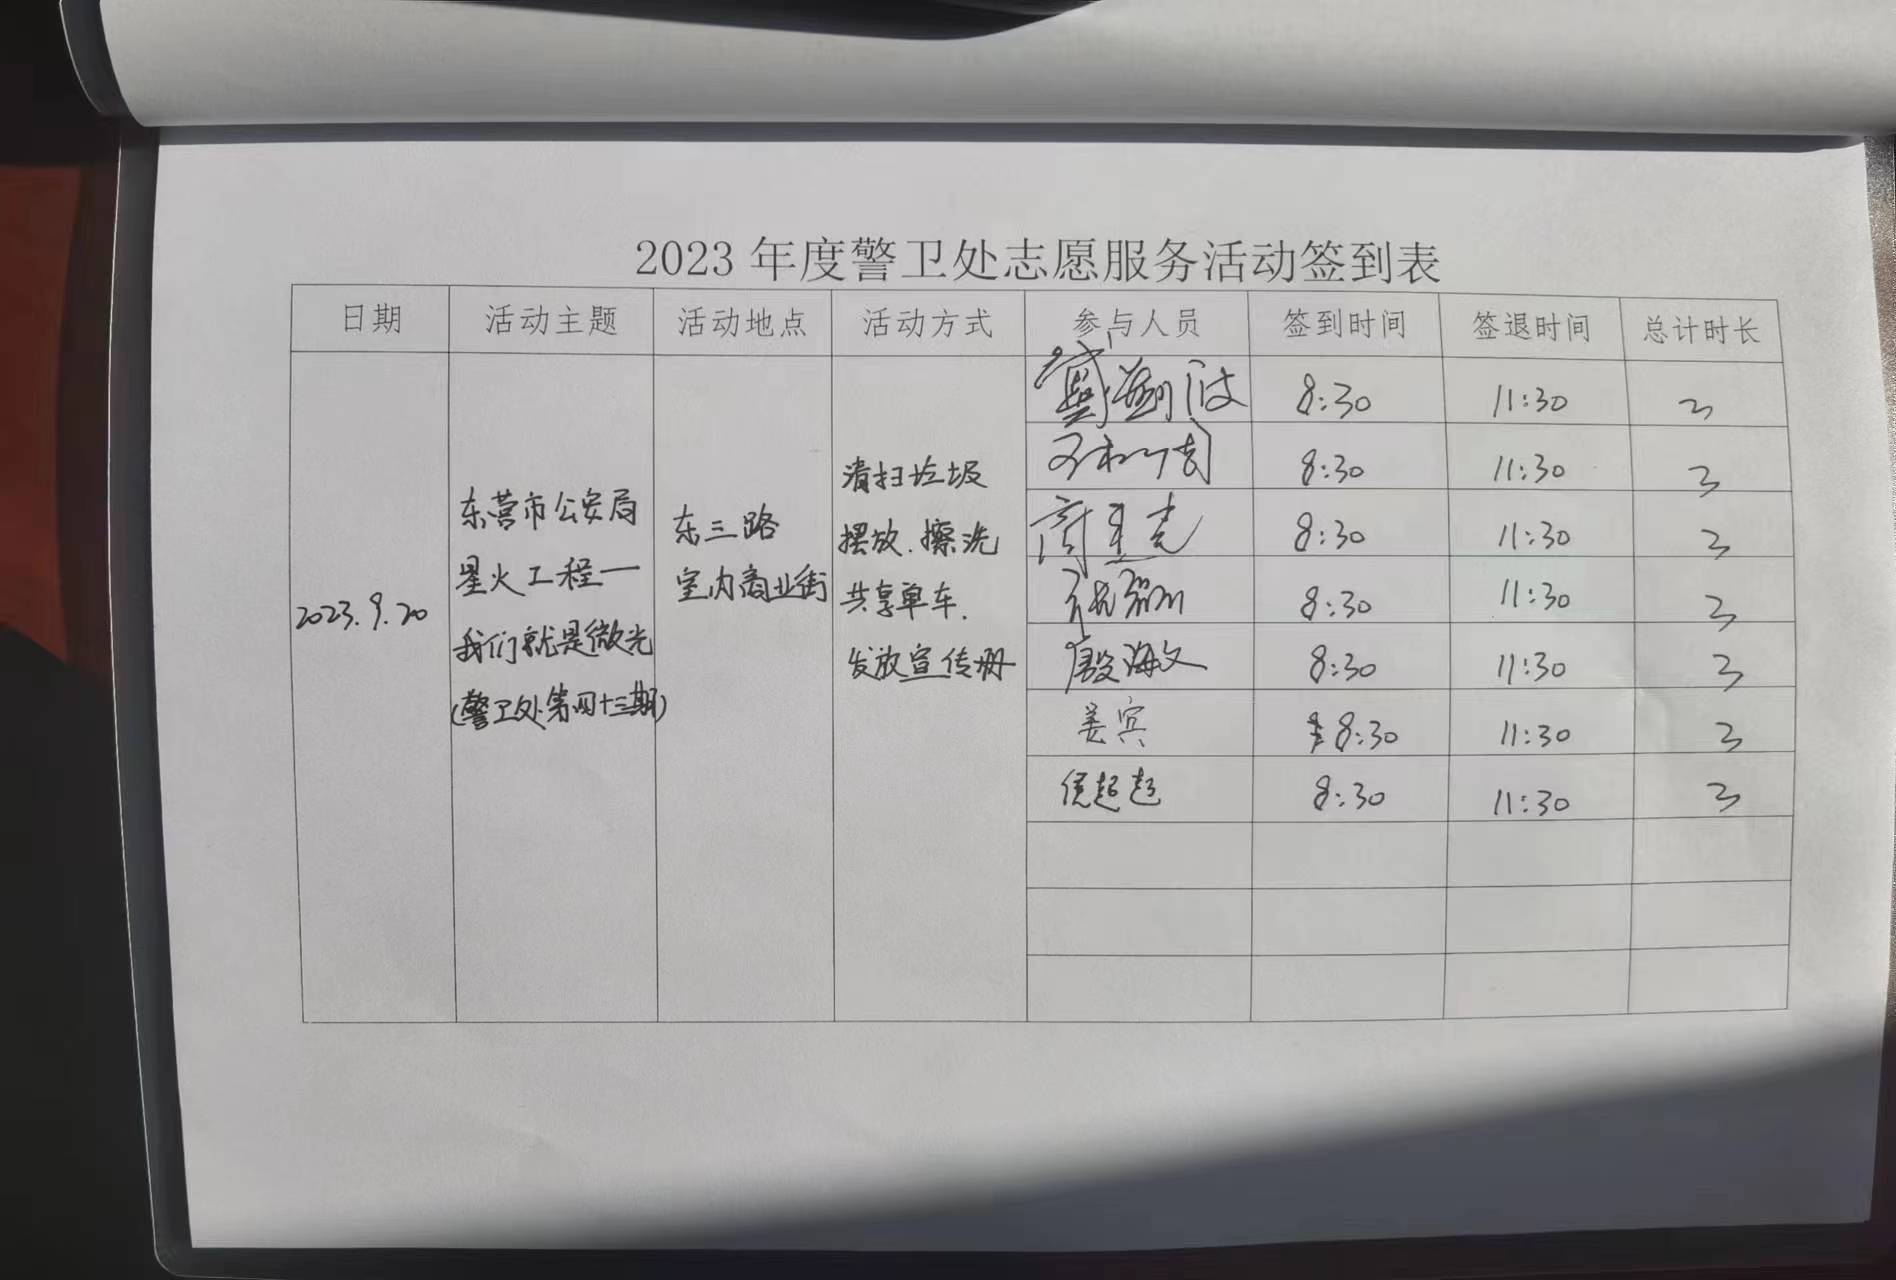 2023 年度警卫处志愿服务活动签到表
日期 活动主题 活动地点 活动方式 参与人员 签到时间 签退时间 总计时长
2023.9.20
东营市公安局
星火工程一
我们就是微光
(警卫处第四十三期)
东三路
室内商业街
清扫垃圾
摆放、擦洗
共享单车.
发放宣传册
8:30 11:30 3
8:30 11:30 3
8:30 11:30 3
8:30 11:30 3
殷海文 8:30 11:30 3
姜宾 8:30 11:30 3
侯起超 8:30 11:30 3